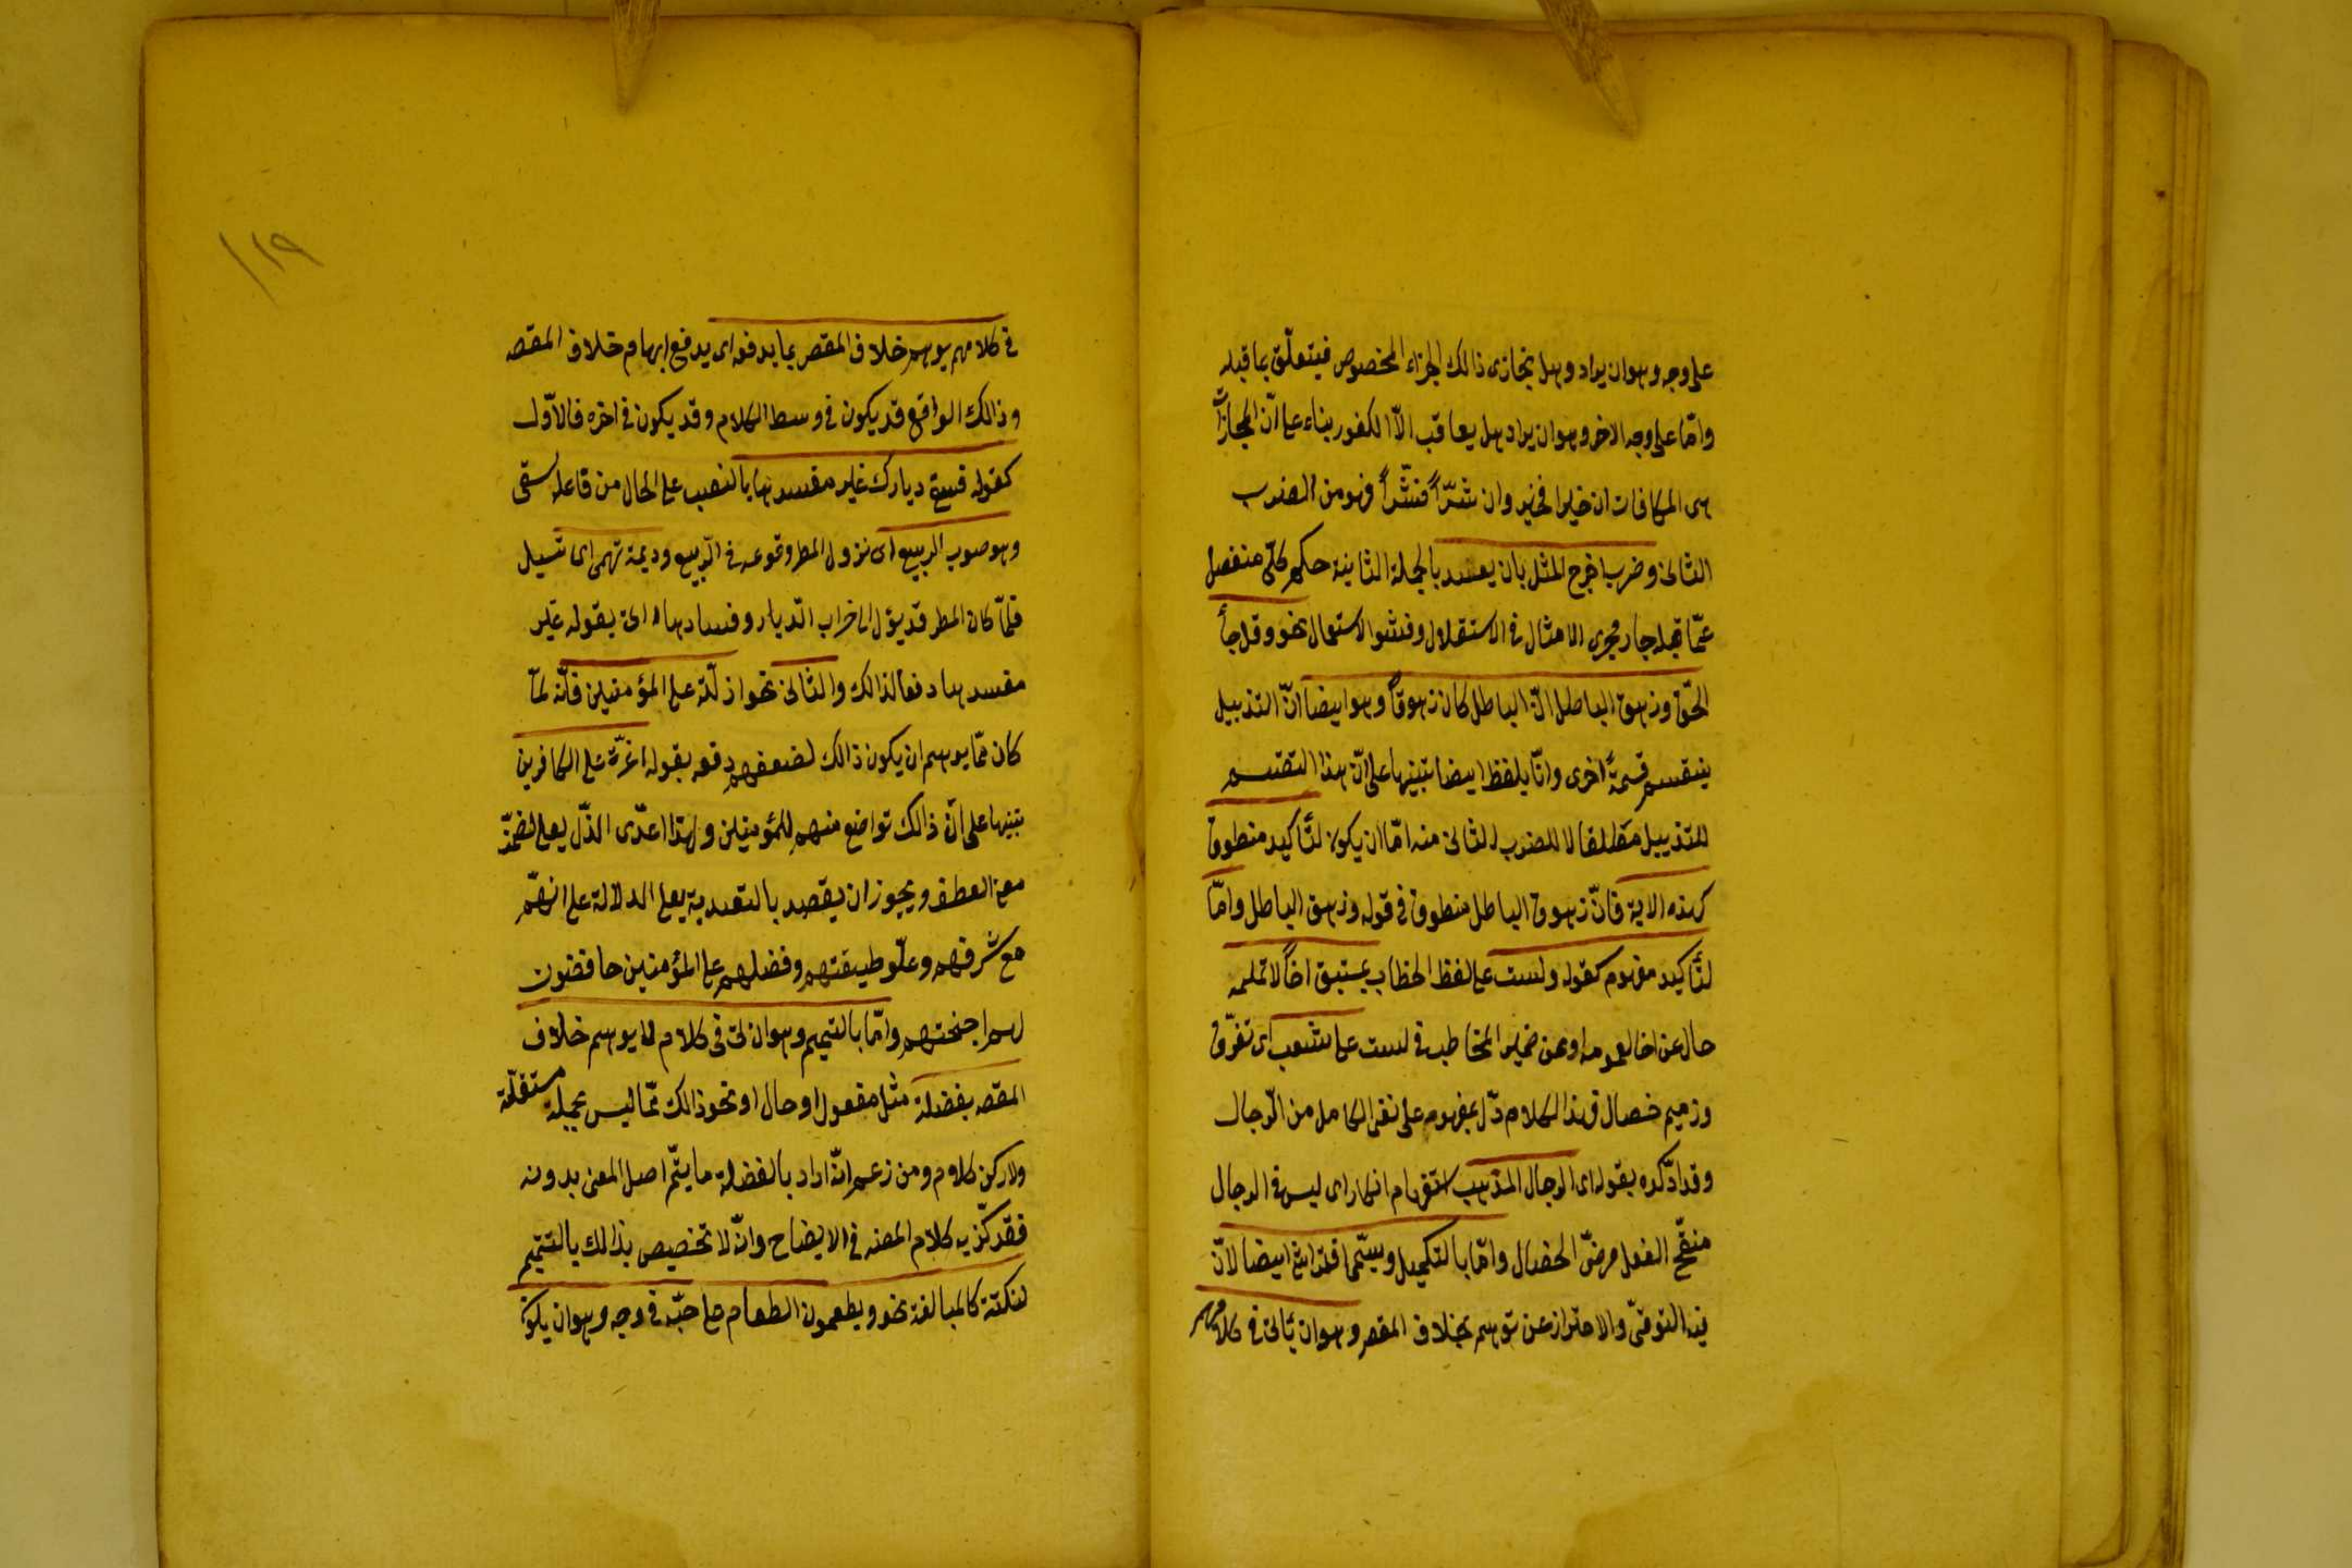 على وجه وهو ان يراد وهل يجازى ذالك الجزاء المخصوص فيتعلّق بما قبله
وامّا على وجه الاخر وهو ان يراد هل يعاقب الّا الكفور بناء على انّ المجازاة
هى المكافات ان خيرا فخير وان شرّاً فشرّاً فهو من الضرب
الثانى وضرب اخرج المثل بان يقصد بالجملة الثانية حكم كلّى منفصل
عمّا قبله جار مجرى الامثال فى الاستقلال وفشو الاستعمال نحو وقل جاأ
الحّق وزهق الباطل انّ الباطل كان زهوقاً وهو ايضا انّ التذييل
ينقسم قسمةً اخرى واتّا بلفظ ايضا تنبيها على انّ هذا التقسيم
للتذييل مطلقا لا للضرب الثانى منه امّا ان يكون لتأكيد منطوق
كهذه الاية فانّ زهوق الباطل منطوق فى قوله وزهق الباطل وامّا
لتأكيد مفهوم كقوله ولست على لفظ الخطاب بمستبق اخاً لا تلمه
حال عن اخا لعمومه او عن ضمير المخاطب فى لست على شعب اى تفرّق
وذميم خصال فهذا الكلام دّل بمفهومه على نفى الكامل من الرّجال
وقد اكّده بقوله اى الرجال المذهب استفهام انكار اى ليس فى الرجال
منقّح الفعل مرضىّ الخصال وامّا بالتكميل ويسّمى الاحتراس ايضا لانّ
فيه التوقىّ والاحتراز عن توهم بخلاف المقصر وهو ان يأتى فى كلام
فى كلامهم يوهم خلاف المقصر بما يدفعه اى يدفع ايهام خلاف المقصه
وذالك الواقع قد يكون فى وسط الكلام وقد يكون فى اخره فالاّول
كقوله فسقى ديارك غير مفسدها بالنصب على الحال من فاعل سقى
وهو صوب الربيع اى نزول المطر وقوعه فى الرّبيع وديمة تهمى اى تسيل
فلمّا كان المطر قد يؤل الى خراب الّديار وفسادها اتى بقوله غير
مفسدها دفعا لذالك والثانى نحو اذلّة على المؤمنين فانّه لمّا
كان ممّا يوهم ان يكون ذالك لضعفهم دفعه بقوله اعزّة على الكافرين
تنبيها على انّ ذالك تواضع منهم للمؤمنين ولهذا اعدّى الذّل بعلى لتضمّنه
معنى العطف ويجوز ان يقصد بالتعدية بعلى الدلالة على انهّم
مع شرفهم وعلّو طبقتهم وفضلهم على المؤمنين حافضون
لهم اجنحتهم وامّا بالتتميم وهو ان يأتى فى كلام لا يوهم خلاف
المقصه بفضلة مثل مفعول او حال او نحو ذالك ممّا ليس بجملة مستقلّة
ولا ركن كلام ومن زعم انّه اراد بالفضلة ما يتّم اصل المعنى بدونه
فقد كذّبه كلام المصنه فى الايضاح وانّه لا تخصيص بذالك بالتتميم
لنكتة كالمبالغة نحو ويطعمون الطعام على حبّه فى وجه وهو ان يكون
١١٩